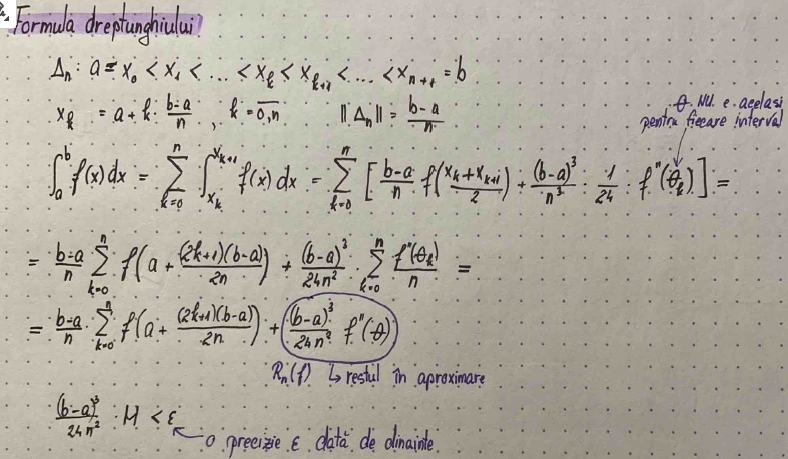 Formula dreptunghiului
Δₙ : a = x₀ < x₁ < ... < x_k < x_{k+1} < ... < x_{n+1} = b
x_k = a + k · (b-a)/n , k = \overline{0,n} ||Δₙ|| = (b-a)/n
θ NU e același
pentru fiecare interval
∫_a^b f(x) dx = Σ_{k=0}^n ∫_{x_k}^{x_{k+1}} f(x) dx = Σ_{k=0}^n [ (b-a)/n f((x_k + x_{k+1})/2) + (b-a)³/n³ · 1/24 · f''(θ_k) ] =
= (b-a)/n Σ_{k=0}^n f(a + (2k+1)(b-a)/2n) + (b-a)³/24n² · Σ_{k=0}^n f''(θ_k)/n =
= (b-a)/n · Σ_{k=0}^n f(a + (2k+1)(b-a)/2n) + (b-a)³/24n² f''(θ)
Rₙ(f) ↳ restul în aproximare
(b-a)³/24n² · M < ε
o precizie ε dată de dinainte